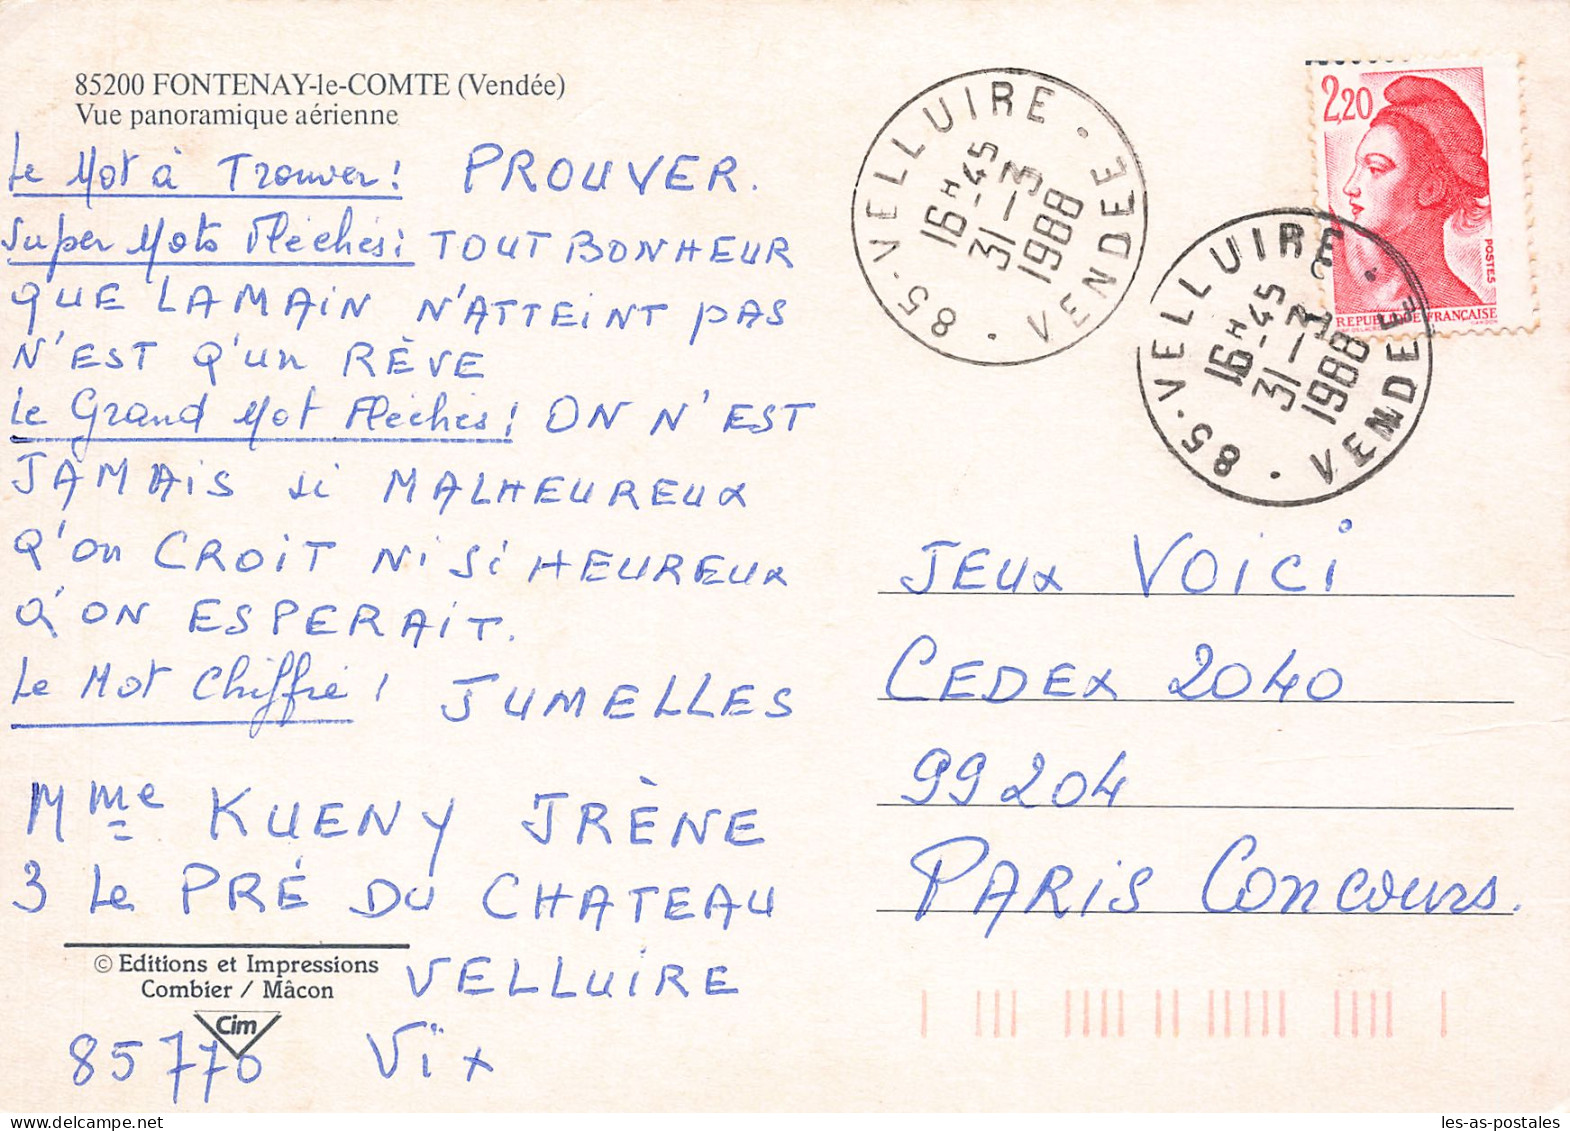 85200 FONTENAY-le-COMTE (Vendée)
Vue panoramique aérienne
Le Mot à Trouver! PROUVER.
Super Mots Fléchés: TOUT BONHEUR
QUE LA MAIN N'ATTEINT pAS
N'EST Q'un RÊVE
Le Grand Mot Fléchés! ON N'EST
JAMAiS si MALHEUREUX
Q'on CROiT Ni Si HEUREUX
Q'ON ESPERAiT.
Le Mot Chiffré! JUMELLES
Mme KUENY IRÈNE
3 Le PRÉ DU CHATEAU
VELLUIRE
85770 Vïx
© Editions et Impressions
Combier / Mâcon
Cim
85 · VELLUIRE · VENDEE ·
16H45
31-3
1988
85 · VELLUIRE · VENDEE ·
16H45
31-3
1988
2,20
POSTES
REPUBLIQUE FRANCAISE
JEUX VOiCi
CEDEX 2040
99204
PARiS Concours.
les-as-postales